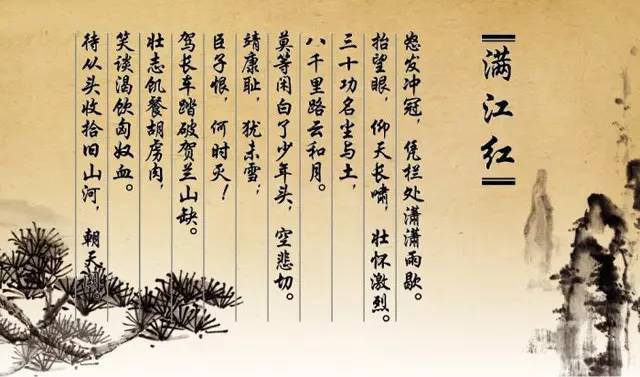 满江红
怒发冲冠，凭栏处潇潇雨歇。
抬望眼，仰天长啸，壮怀激烈。
三十功名尘与土，
八千里路云和月。
莫等闲白了少年头，空悲切。
靖康耻，犹未雪；
臣子恨，何时灭！
驾长车踏破贺兰山缺。
壮志饥餐胡虏肉，
笑谈渴饮匈奴血。
待从头收拾旧山河，朝天阙